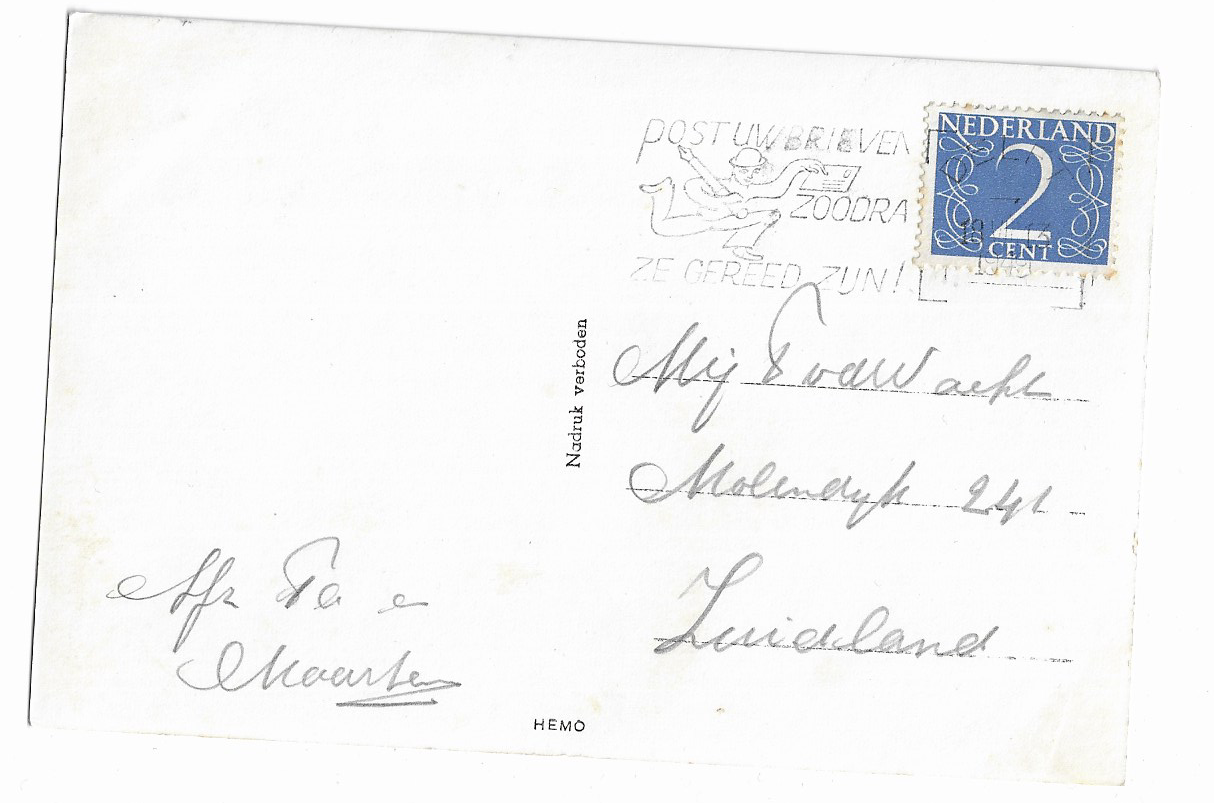 POST UW BRIEVEN
ZOODRA
ZE GEREED ZIJN!
NEDERLAND
2
CENT
18
1949
Nadruk verboden
Mej T vd Wacht
Molendijk 241
Zuidland
Afz Fa
Maarten
HEMO